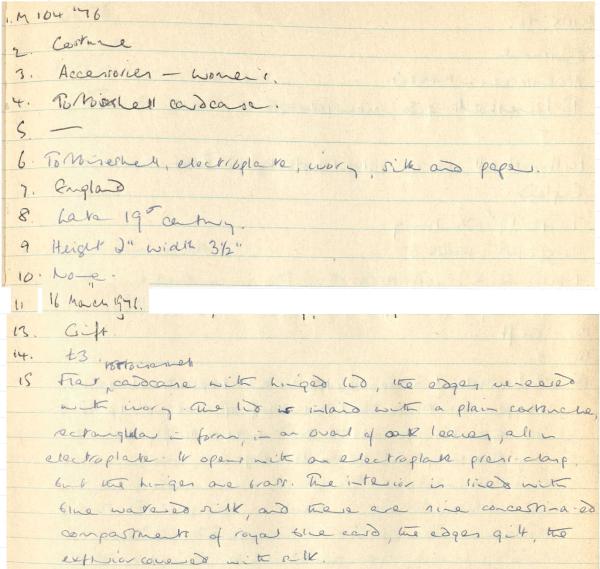 1. M 104 '76
2. Costume
3. Accessories — women's.
4. Tortoiseshell cardcase.
5 —
6. Tortoiseshell, electroplate, ivory, silk and paper.
7. England
8. Late 19th century.
9 Height 2" width 3½"
10. None.
11 16 March 1976.
13. Gift.
14. £3
tortoiseshell
15 Flat, cardcase with hinged lid, the edges veneered
with ivory. The lid is inlaid with a plain cartouche,
rectangular in form, in an oval of oak leaves, all in
electroplate. It opens with an electroplate press-clasp,
but the hinges are brass. The interior is lined with
blue watered silk, and there are nine concertina-ed
compartments of royal blue card, the edges gilt, the
exterior covered with silk.